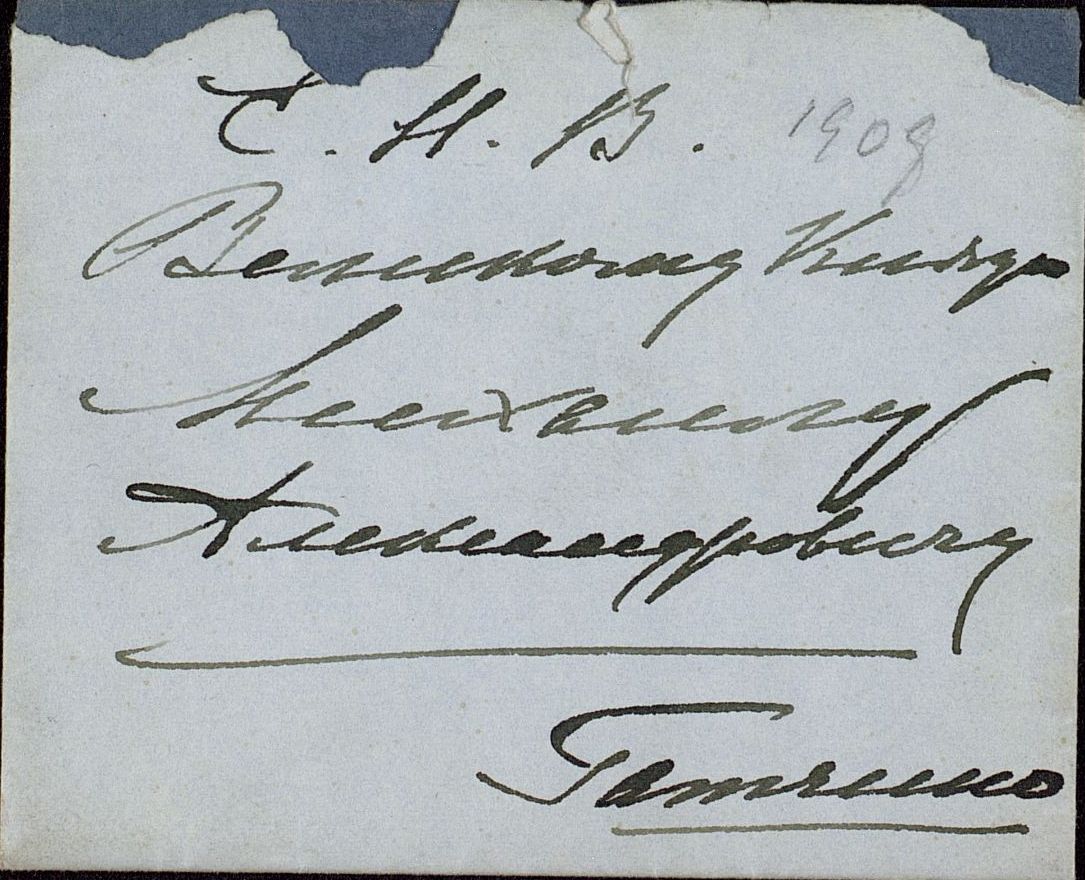 Е. И. В. 1908
Великому Князю
Михаилу
Александровичу
Гатчино